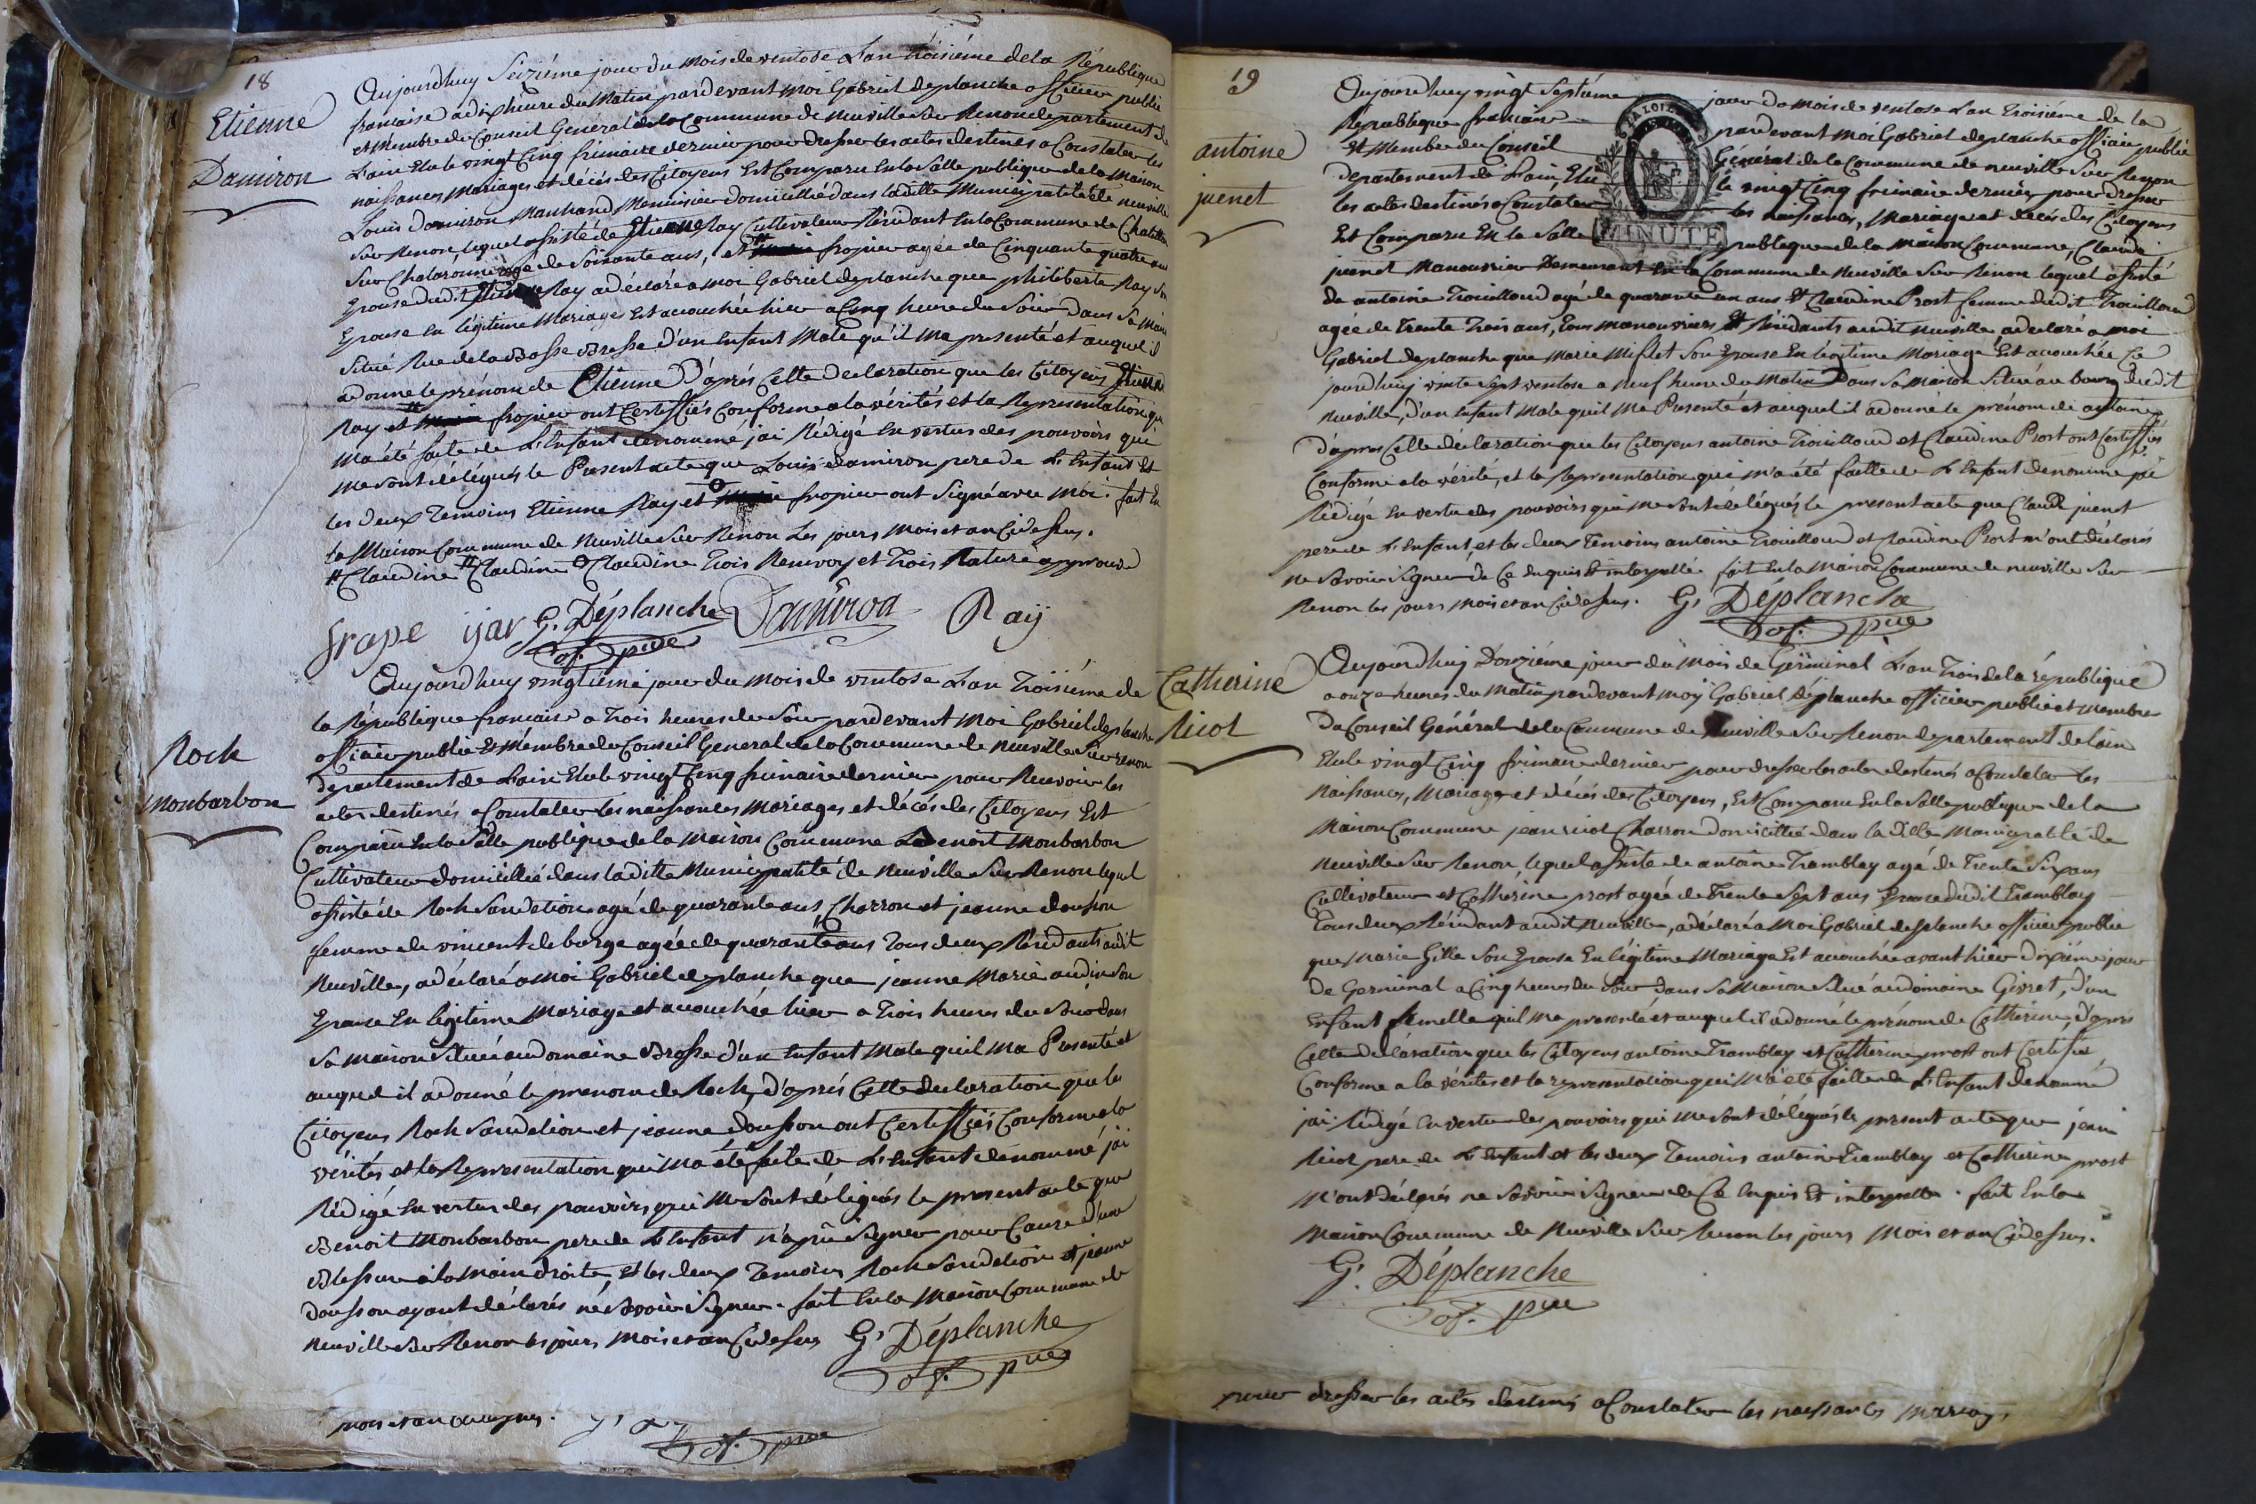 18
Etienne
Damiron
Aujourdhuy Seizième jour du mois de ventose L'an troisième de la République
francaise a dix heure du Matin pardevant Moi Gabriel deplanche officier public
et Membre du Conseil General de la Commune de Neuville Sur Renon departement de
L'ain Elu le vingt Cinq frimaire dernier pour dresser les actes destinés a Constater les
naissances Mariages et décès des Citoyens Est Comparu En la Salle publique de la Maison
Louis Damiron Marchand Menuisier domicillié dans la ditte Municipalité de neuville
Sur Renon, lequel assisté de Etienne Ray Cultivateur Résidant En la Commune de Chatillon
Sur Chalaronne agé de Soixante ans, et # fropier agée de Cinquante quatre ans
Epouse dudit Etienne Ray a déclaré a moi Gabriel deplanche que philiberte Ray Son
Epouse En légitime Mariage Est accouchée hier a Cinq heure du Soir dans Sa Maison
Situé Rue de la Basse Bresse d'un Enfant Male qu'il Ma presenté et auquel il
a donné le prénom de Etienne D'après Cette declaration que les Citoyens Etienne
Ray et # fropier ont Certiffiés Conforme a la vérités et la Representation qui
M'a été faite de L'Enfant denommé j'ai Rédigé En vertus des pouvoirs qui
Me sont délégués le Present acte que Louis damiron pere de L'Enfant Et
les deux Temoins Etienne Ray et fropier ont Signé avec Moi. fait En
la Maison Commune de Neuville Sur Renon Les jours Mois et an Cidessus.
# Claudine # Claudine o Claudine Trois Renvoy et Trois Rature approuvé
G. Déplanche Damiron Ray
of. pue
Rock
Monbarbon
Aujourdhuy vingtième jour du Mois de ventose L'an Troisième de
la République francaise a Trois heures de Soir pardevant Moi Gabriel deplanche
officier public Et Membre du Conseil General de la Commune de Neuville Sur renon
departement de L'ain Elu le vingt Cinq frimaire dernier pour Recevoir les
actes destinés a Constater les naissances Mariages et décès des Citoyens Est
Comparu En la Salle publique de la Maison Commune Benoit Monbarbon
Cultivateur domicillié dans la ditte Municipalité de Neuville Sur Renon lequel
assisté de Rock Sandelion agé de quarante ans, Charron et jeanne dousson
femme de vincent deborge agée de quarante ans Tous deux Résidants audit
Neuville, a déclaré a Moi Gabriel deplanche que jeanne Marie audin Son
Epouse En légitime Mariage est accouchée hier a Trois heures du Soir dans
Sa Maison Située au Domaine Brosse d'un Enfant Male quil Ma Presenté et
auquel il a donné le prenom de Rock, d'après Cette declaration que les
Citoyens Rock Sandelion et jeanne Dousson ont Certiffiés Conforme a la
vérités et la Representation qui M'a été faite de L'Enfant denommé j'ai
Rédigé En vertus des pouvoirs qui Me Sont délégués le present acte que
Benoit Monbarbon pere de L'Enfant n'a pu Signer pour Cause d'une
Blessure a la Main droite, Et les deux Temoins Rock Sandelion et jeanne
dousson ayant déclarés ne Savoir Signer. fait En la Maison Commune de
Neuville Sur Renon les jours Mois et an Cidessus G. Déplanche
of. pue
mois et an
of. pue
19
antoine
juenet
Aujourdhuy vingt Septième jour du mois de ventose L'an Troisième de la
Republique francaise pardevant Moi Gabriel deplanche officier public
Et Membre du Conseil Général de la Commune de neuville Sur Renon
departement de L'ain, Elu le vingt Cinq frimaire dernier pour dresser
les actes destinés a Constater les naissances, Mariage et décès des Citoyens
MINUTE
Est Comparu En la Salle publique de la Maison Commune, Claude
juenet Manouvrier Demeurant En la Commune de Neuville Sur Renon lequel assisté
de antoine Trouilloud agé de quarante un ans Et Claudine Prost femme dudit Trouilloud
agée de Trente Trois ans, Tous manouvriers Et Résidants audit Neuville a declaré a moi
Gabriel deplanche que Marie Miflet Son Epouse En légitime Mariage Est accouchée Ce
jourdhuy vinte Sept ventose a neuf heure du Matin Dans Sa Maison Situé au bourg dudit
Neuville, d'un Enfant Male quil Ma Presenté et auquel il a donné le prénom de antoine
d'après Cette déclaration que les Citoyens antoine Trouilloud et Claudine Prost ont Certiffiés
Conforme a la vérité, et la Representation qui m'a été faitte de L'Enfant denommé j'ai
Rédigé En vertu des pouvoirs qui Me Sont délégués le present acte que Claude juenet
pere de L'Enfant, et les deux Temoins antoine Trouilloud et Claudine Prost m'ont déclarés
ne Savoir Signer de Ce Enquis Et interpellé. fait En la Maison Commune de neuville Sur
Renon les jours Mois et an Cidessus. G. Déplanche
of. pue
Catherine
Ricol
Aujourdhuy Douzième jour du Mois de Germinal L'an Trois de la république
a onze heures du Matin pardevant moy Gabriel Déplanche officier public et Membre
Du Conseil Général de la Commune de Neuville Sur Renon departement de L'ain
Elu le vingt Cinq frimaire dernier pour dresser les actes destinés a Constater les
Naissances, Mariage et décès des Citoyens, Est Comparu En la Salle publique de la
Maison Commune jean ricol Charron domicillié dans la ditte Municipalité de
Neuville Sur Renon, lequel assisté de antoine Tramblay agé de Trente Six ans
Cultivateur et Catherine prost agée de Trente Sept ans Epouse dudit Tramblay
Tous deux Résidant audit Neuville, a déclaré a Moi Gabriel deplanche officier public
que Marie Gille Son Epouse En légitime Mariage Est accouchée avant hier dixième jour
De Germinal a Cinq heures du Soir Dans Sa Maison Situé au domaine Givret, d'un
Enfant femelle quil Ma presenté et auquel il a donné le prénom de Catherine, d'après
Cette Declaration que les Citoyens antoine Tramblay et Catherine prost ont Certifié
Conforme a la vérités et la representation qui M'a été faitte de L'Enfant denommé
jai Rédigé En vertu des pouvoirs qui Me Sont délégués le present acte que jean
Ricol pere de L'Enfant et les deux Temoins antoine Tramblay et Catherine prost
M'ont Déclarés ne Savoir Signer de Ce Enquis Et interpellé. fait En la
Maison Commune de Neuville Sur Renon les jours Mois et an Cidessus.
G. Déplanche
of. pue
pour dresser les actes destinés a Constater les naissances Mariages